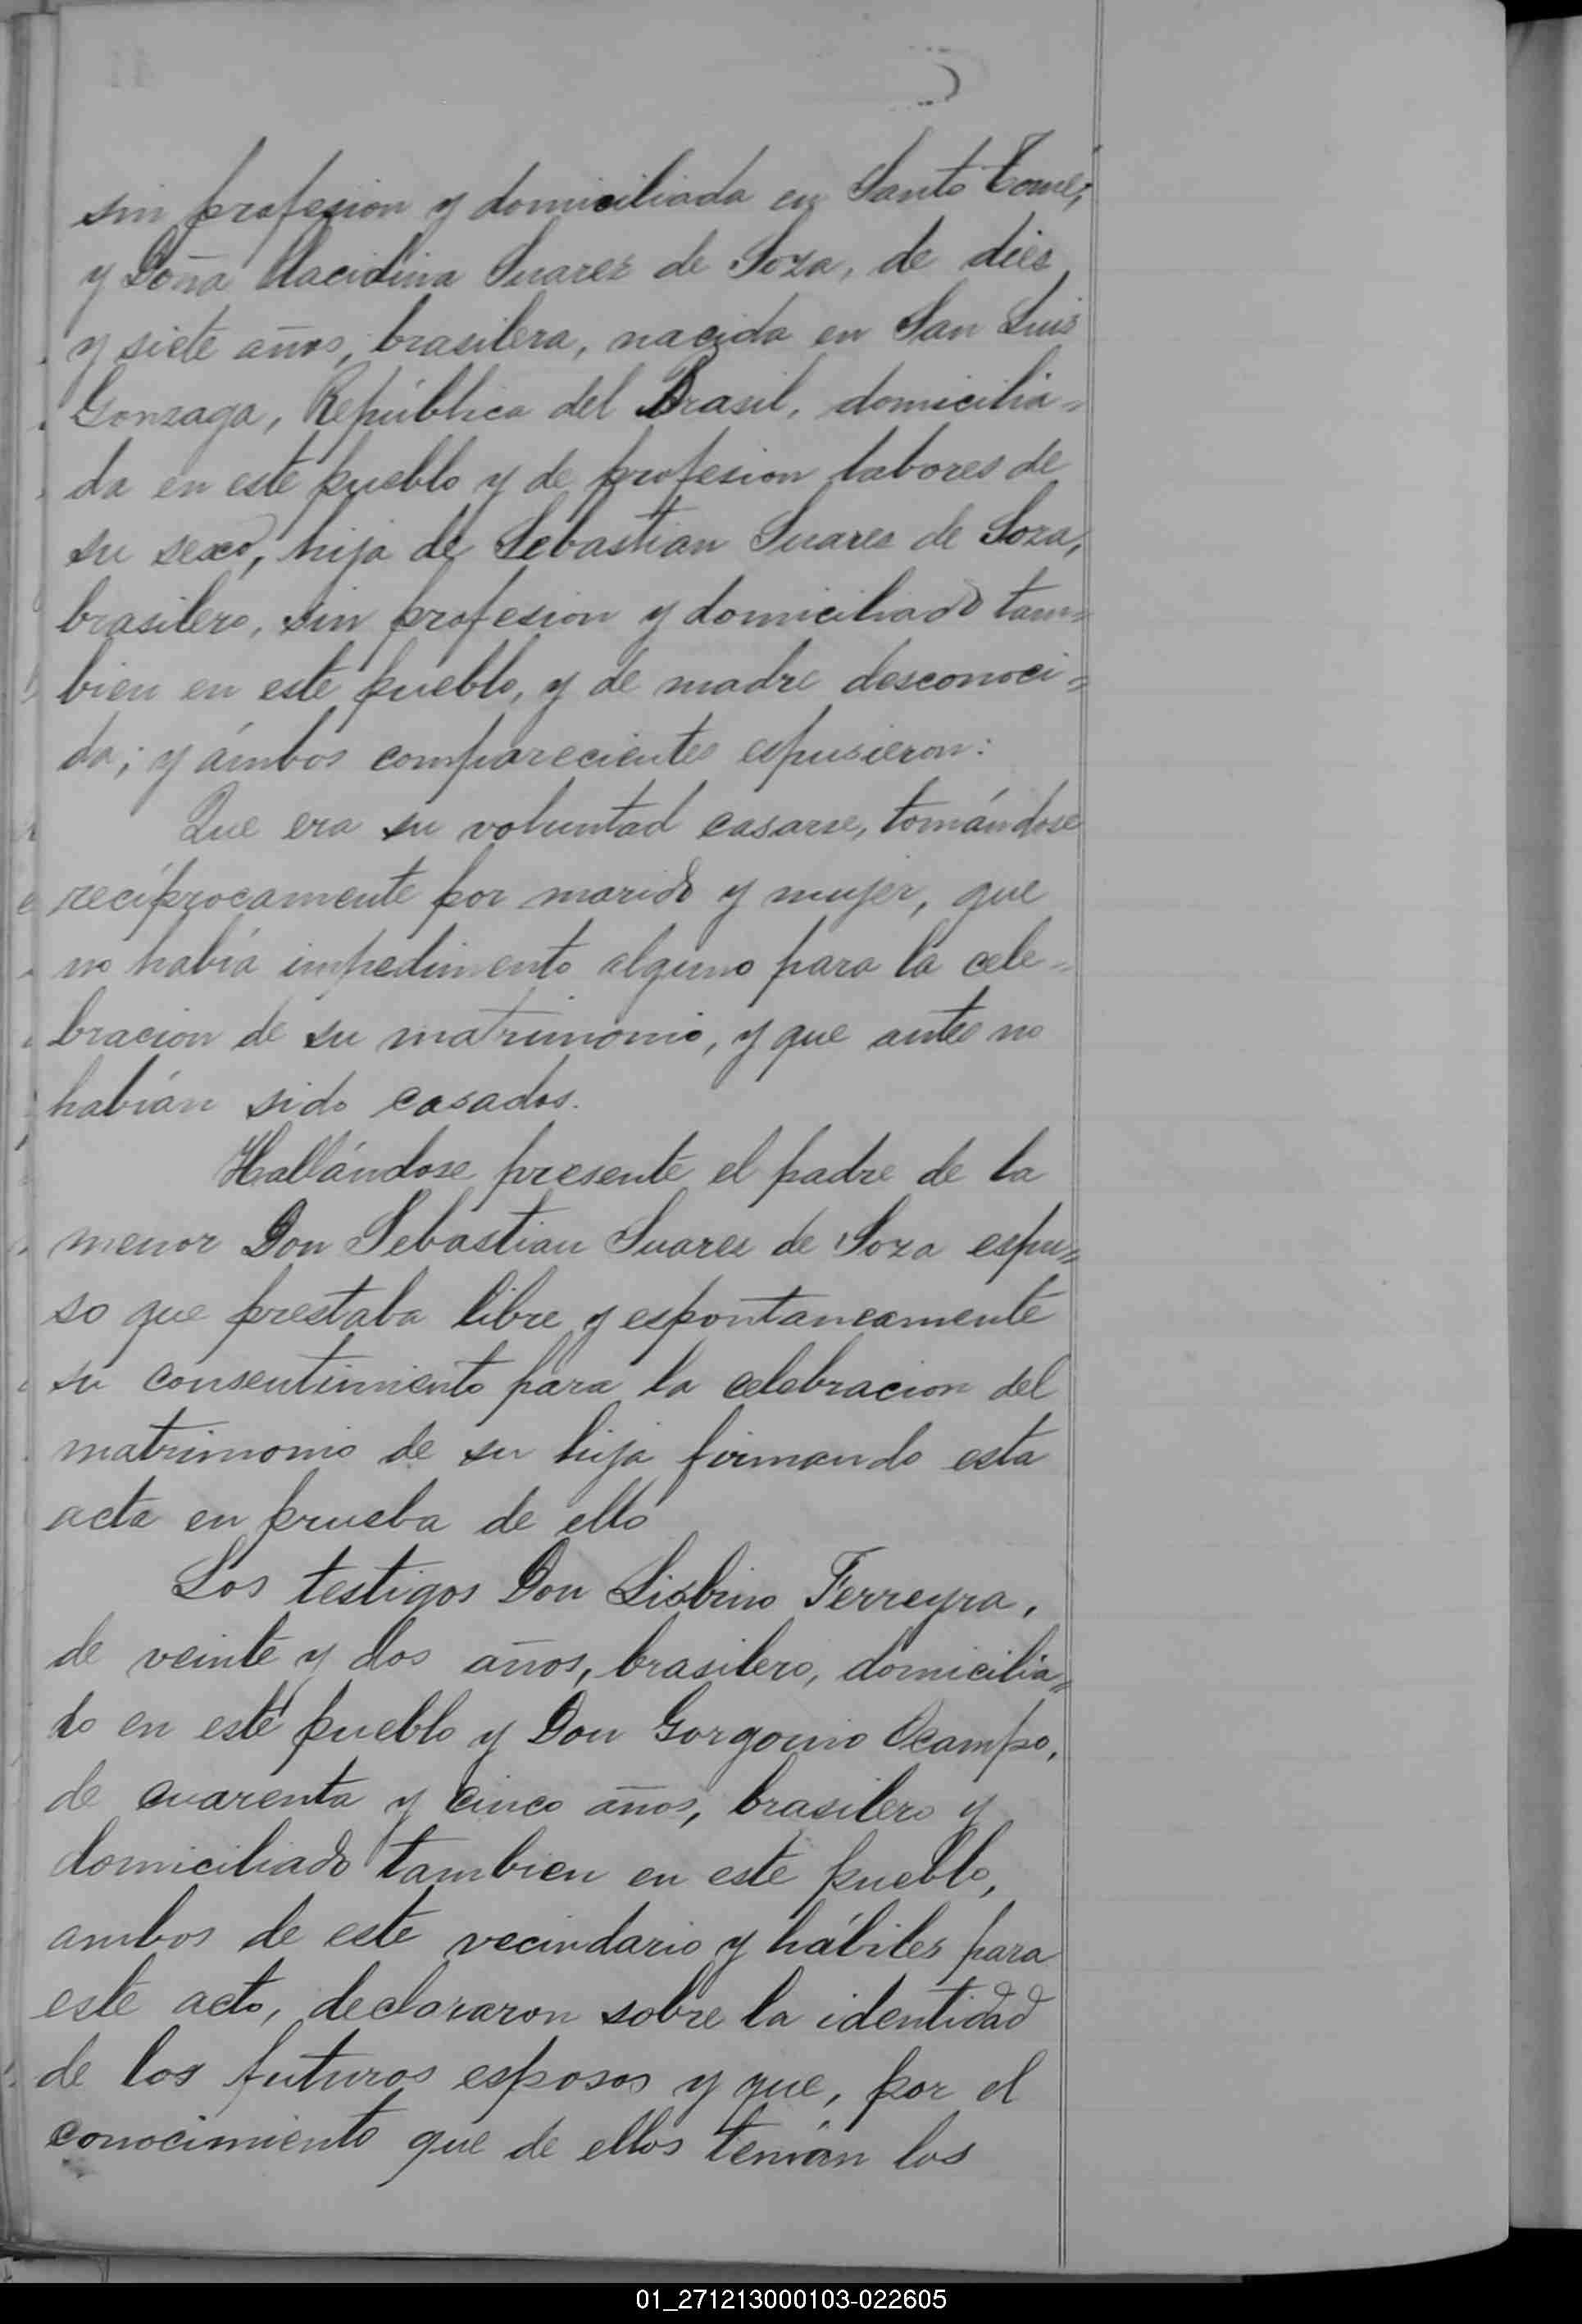 sin profesion y domiciliada en Santo Tomé,
y Doña Placidina Suarez de Soza, de dies
y siete años, brasilera, nacida en San Luis
Gonzaga, República del Brasil, domicilia=
da en este pueblo y de profesion labores de
su sexo, hija de Sebastian Suares de Soza,
brasilero, sin profesion y domiciliado tam=
bien en este pueblo, y de madre desconoci=
da; y ámbos comparecientes espusieron:
Que era su voluntad casarse, tomándose
recíprocamente por marido y mujer, que
no había impedimento alguno para la cele=
bracion de su matrimonio, y que antes no
habían sido casados.
Hallándose presente el padre de la
menor Don Sebastian Suares de Soza espu=
so que prestaba libre y espontaneamente
su consentimiento para la celebracion del
matrimonio de su hija firmando esta
acta en prueba de ello
Los testigos Don Lisbino Ferreyra,
de veinte y dos años, brasilero, domicilia=
do en este pueblo y Don Gorgonio Ocampo,
de cuarenta y cinco años, brasilero y
domiciliado tambien en este pueblo,
ambos de este vecindario y hábiles para
este acto, declararon sobre la identidad
de los futuros esposos y que, por el
conocimiento que de ellos tenían los
01_271213000103-022605